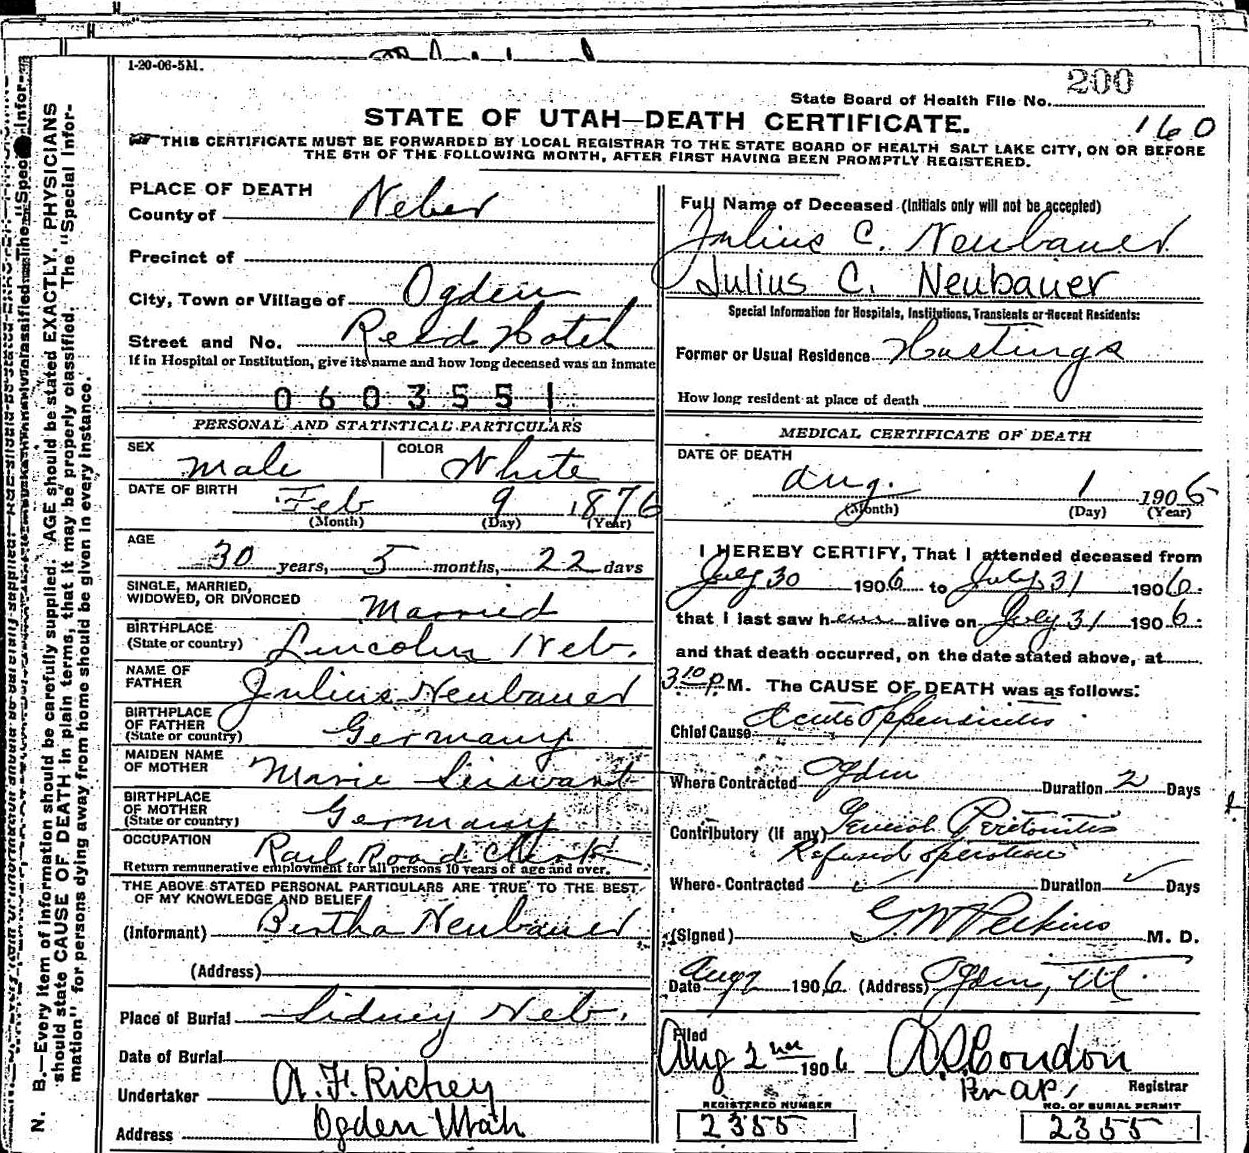 1-20-06-5M.
200
State Board of Health File No.
160
STATE OF UTAH—DEATH CERTIFICATE.
THIS CERTIFICATE MUST BE FORWARDED BY LOCAL REGISTRAR TO THE STATE BOARD OF HEALTH SALT LAKE CITY, ON OR BEFORE
THE 5TH OF THE FOLLOWING MONTH, AFTER FIRST HAVING BEEN PROMPTLY REGISTERED.
N. B.—Every item of information should be carefully supplied. AGE should be stated EXACTLY. PHYSICIANS
should state CAUSE OF DEATH in plain terms, that it may be properly classified. The "Special Infor-
mation" for persons dying away from home should be given in every instance.
PLACE OF DEATH
County of Weber
Precinct of
City, Town or Village of Ogden
Street and No. Reed Hotel
If in Hospital or Institution, give its name and how long deceased was an inmate
0603551
PERSONAL AND STATISTICAL PARTICULARS
SEX Male COLOR White
DATE OF BIRTH Feb 9 1876
(Month) (Day) (Year)
AGE
30 years, 5 months, 22 days
SINGLE, MARRIED,
WIDOWED, OR DIVORCED Married
BIRTHPLACE
(State or country) Lincoln Neb.
NAME OF
FATHER Julius Neubauer
BIRTHPLACE
OF FATHER
(State or country) Germany
MAIDEN NAME
OF MOTHER Marie
BIRTHPLACE
OF MOTHER
(State or country) Germany
OCCUPATION Rail Road Clerk
Return remunerative employment for all persons 10 years of age and over.
THE ABOVE STATED PERSONAL PARTICULARS ARE TRUE TO THE BEST
OF MY KNOWLEDGE AND BELIEF
(Informant) Bertha Neubauer
(Address)
Place of Burial Sidney Neb.
Date of Burial
Undertaker A. F. Richey
Address Ogden Utah
Full Name of Deceased (Initials only will not be accepted)
Julius C. Neubauer
Julius C. Neubauer
Special Information for Hospitals, Institutions, Transients or Recent Residents:
Former or Usual Residence Hastings
How long resident at place of death
MEDICAL CERTIFICATE OF DEATH
DATE OF DEATH
Aug. 1 1906
(Month) (Day) (Year)
I HEREBY CERTIFY, That I attended deceased from
July 30 1906 to July 31 1906.
that I last saw h alive on July 31 1906.
and that death occurred, on the date stated above, at
3 10 P. M. The CAUSE OF DEATH was as follows:
Chief Cause Acute Appendicitis
Where Contracted Ogden Duration 2 Days
Contributory (if any) General Peritonitis
Refused operation
Where Contracted Duration Days
(Signed) G W Perkins M. D.
Date Aug 2 1906. (Address) Ogden, Ut
Filed
Aug 2nd 1906 A. S. Condon
Registrar
REGISTERED NUMBER
2355
NO. OF BURIAL PERMIT
2355